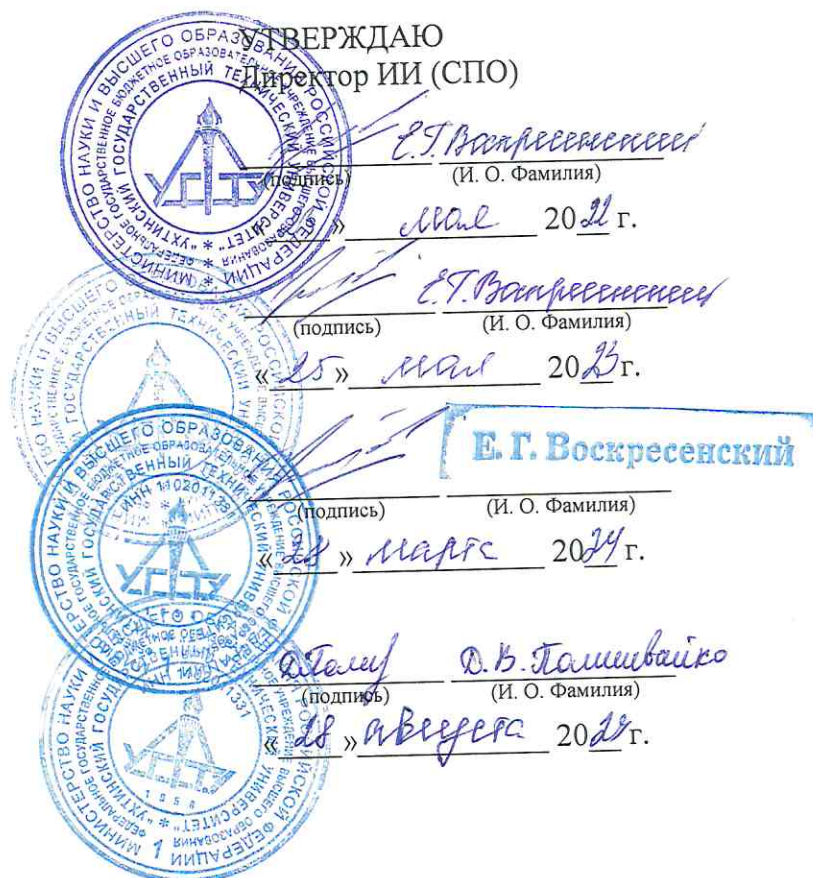 УТВЕРЖДАЮ
Директор ИИ (СПО)
Е.Г. Воскресенский
(подпись) (И. О. Фамилия)
» мая 2022 г.
Е.Г. Воскресенский
(подпись) (И. О. Фамилия)
«25» мая 2023 г.
Е. Г. Воскресенский
(подпись) (И. О. Фамилия)
«28» марта 2024 г.
Д. В. Полишвайко
(подпись) (И. О. Фамилия)
«28» августа 2024 г.
МИНИСТЕРСТВО НАУКИ И ВЫСШЕГО ОБРАЗОВАНИЯ РОССИЙСКОЙ ФЕДЕРАЦИИ
ФЕДЕРАЛЬНОЕ ГОСУДАРСТВЕННОЕ БЮДЖЕТНОЕ ОБРАЗОВАТЕЛЬНОЕ УЧРЕЖДЕНИЕ ВЫСШЕГО ОБРАЗОВАНИЯ
"УХТИНСКИЙ ГОСУДАРСТВЕННЫЙ ТЕХНИЧЕСКИЙ УНИВЕРСИТЕТ"
УГТУ